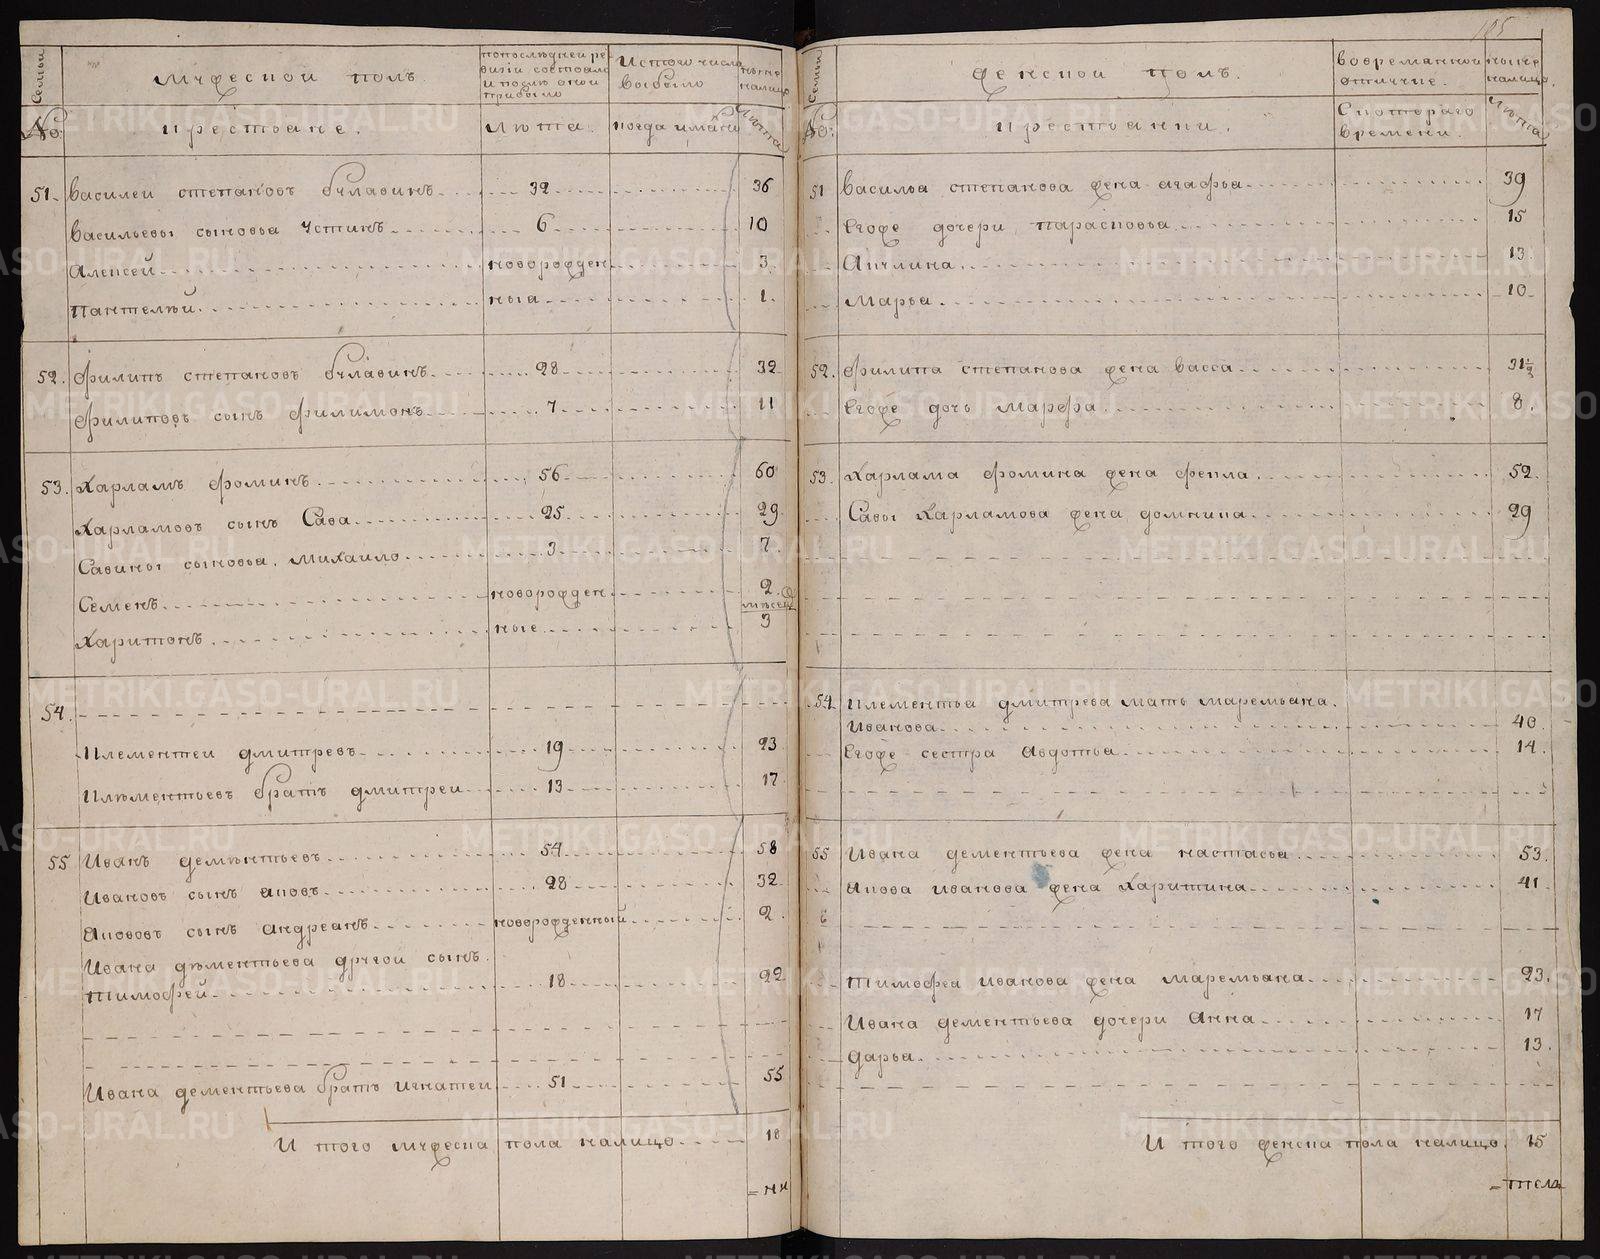 185
Семьи
мужеской полъ.
попослѣдней ре
визіи состояло
и послѣ оной
прибыло
Истого числа
выбыло
нынѣ
налицо
№:
крестьяне.
лѣта.
когда имяно
лѣта
51. Василей степановъ булавинъ 32 36
Васильевы сыновья Устинъ 6 10
Алексей новорожден 3.
Пантелѣй. ныя 1.
52. Филипъ степановъ булавинъ 28 32
Филиповъ сынъ филимонъ 7 11
53. Харламъ фоминъ. 56 60
Харламовъ сынъ Сава 25 29
Савины сыновья. михайло 3 7.
Семенъ новорожден 2.
мѣсец
Харитонъ ные 3
54.
Клементей дмитревъ 19 23
Клѣментьевъ братъ дмитрей 13 17
55 Иванъ демѣнтьевъ 54 58
Ивановъ сынъ яковъ 28 32
Яковов сынъ андреанъ новорожденный 2.
Ивана дѣментьева другой сынъ.
тимофей 18 22
Ивана дементьева братъ игнатей 51 55
И того мужеска пола налицо 18
Семьи
женской полъ.
вовременной
отлучке.
ныне
налицо
№:
крестьянки.
Скотораго
времени.
лѣта
51 Василья степанова жена агафья 39
Егоже дочери парасковья 15
Акулина. 13
Марья. 10
52. Филипа степанова жена васса 31½
Егоже дочь марфа 8.
53. Харлама фомина жена фекла. 52.
Савы Харламова жена домнина 29
54 Клементья дмитрева мать маремьяна.
Иванова 40
Егоже сестра авдотья 14.
55 Ивана дементьева жена настасья 53.
Якова иванова жена харитина 41
тимофея иванова жена маремьяна 23.
Ивана дементьева дочери анна 17
дарья. 13.
И того женска пола налицо. 15
METRIKI.GASO-URAL.RU